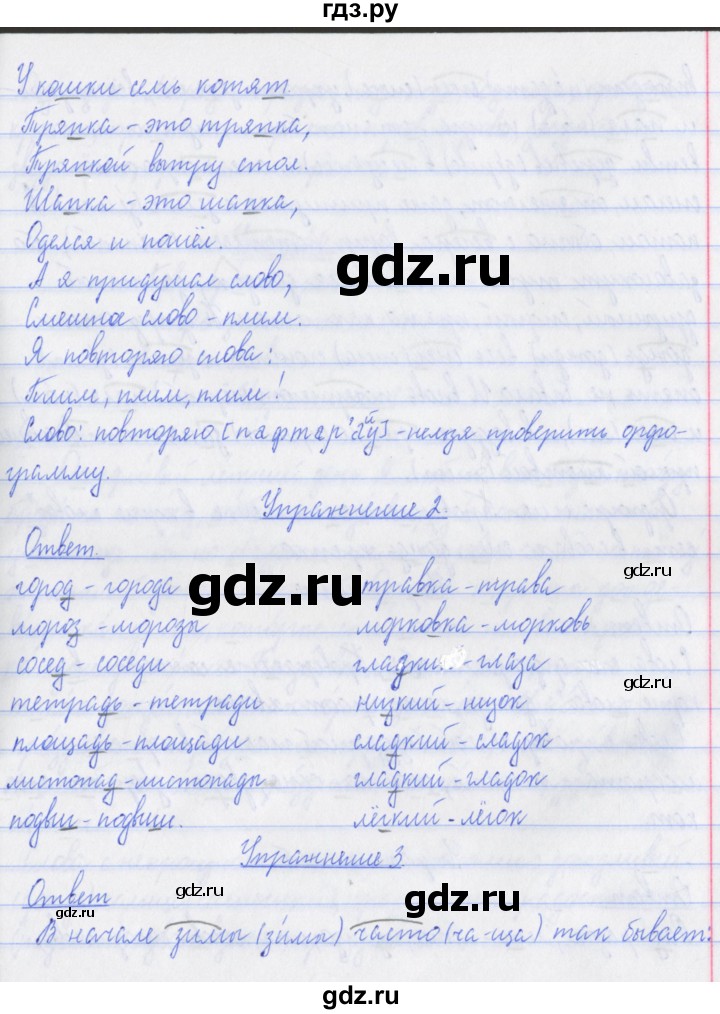 гдз.ру
У кошки семь котят.
Тряпка - это тряпка,
Тряпкой вытру стол.
Шапка - это шапка,
Оделся и пошёл.
gdz.ru
А я придумал слово,
Смешное слово - плим.
Я повторяю слова:
Плим, плим, плим!
Слово: повторяю [пафтар'айу] - нельзя проверить орфо-
грамму.
Упражнение 2.
Ответ.
город - города
травка - трава
gdz.ru
gdz.ru
мороз - морозы
морковка - морковь
сосед - соседи
глазки - глаза
gdz.ru
тетрадь - тетради
низкий - низок
площадь - площади
сладкий - сладок
листопад - листопады
гладкий - гладок
подвиш - подвиши.
лёгкий - лёгок
Упражнение 3
Ответ
gdz.ru
gdz.ru
gdz.ru
В начале зимы (зи́мы) часто (ча-ща) так бывает:
gdz.ru